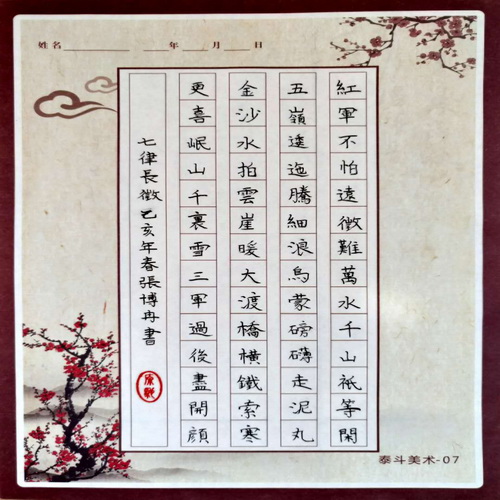 姓名 年 月 日
紅軍不怕遠徵難萬水千山祇等閑
五嶺逶迤騰細浪烏蒙磅礴走泥丸
金沙水拍雲崖暖大渡橋橫鐵索寒
更喜岷山千裏雪三軍過後盡開顔
七律長徵己亥年春張博冉書
泰斗美术-07